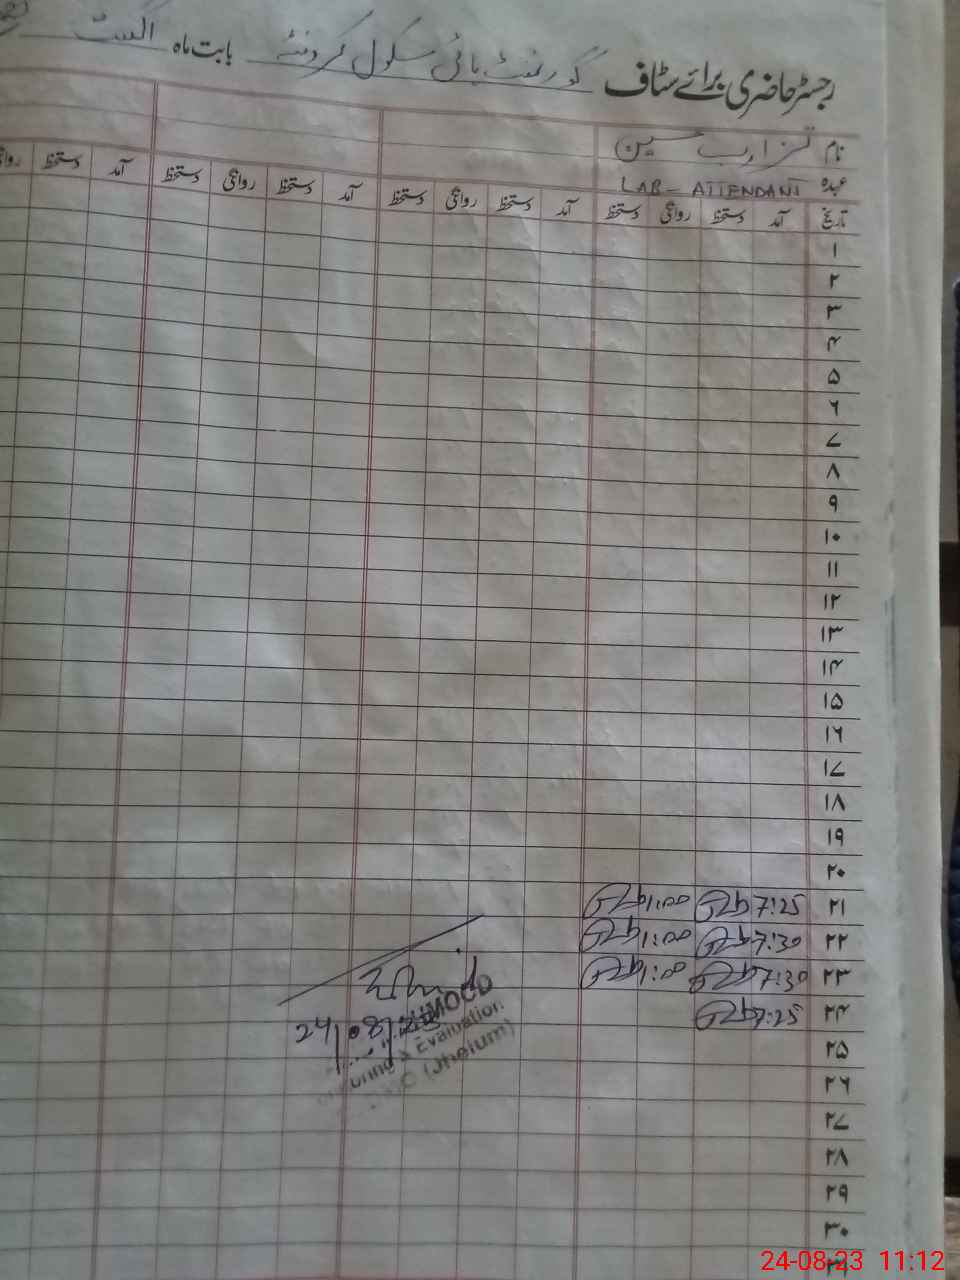 رجسٹر حاضری برائے سٹاف گورنمنٹ ہائی سکول بابت ماہ اگست
نام حسین
عہدہ LAB - ATTENDANT
تاریخ آمد دستخط روانگی دستخط آمد دستخط روانگی دستخط آمد دستخط روانگی دستخط آمد دستخط
۱
۲
۳
۴
۵
۶
۷
۸
۹
۱۰
۱۱
۱۲
۱۳
۱۴
۱۵
۱۶
۱۷
۱۸
۱۹
۲۰
۲۱ 7:25 1:00
۲۲ 7:30 1:00
۲۳ 7:30 1:00
۲۴ 7:25
۲۵
۲۶
۲۷
۲۸
۲۹
۳۰
Evaluation
(Jhelum)
24-08-23 11:12